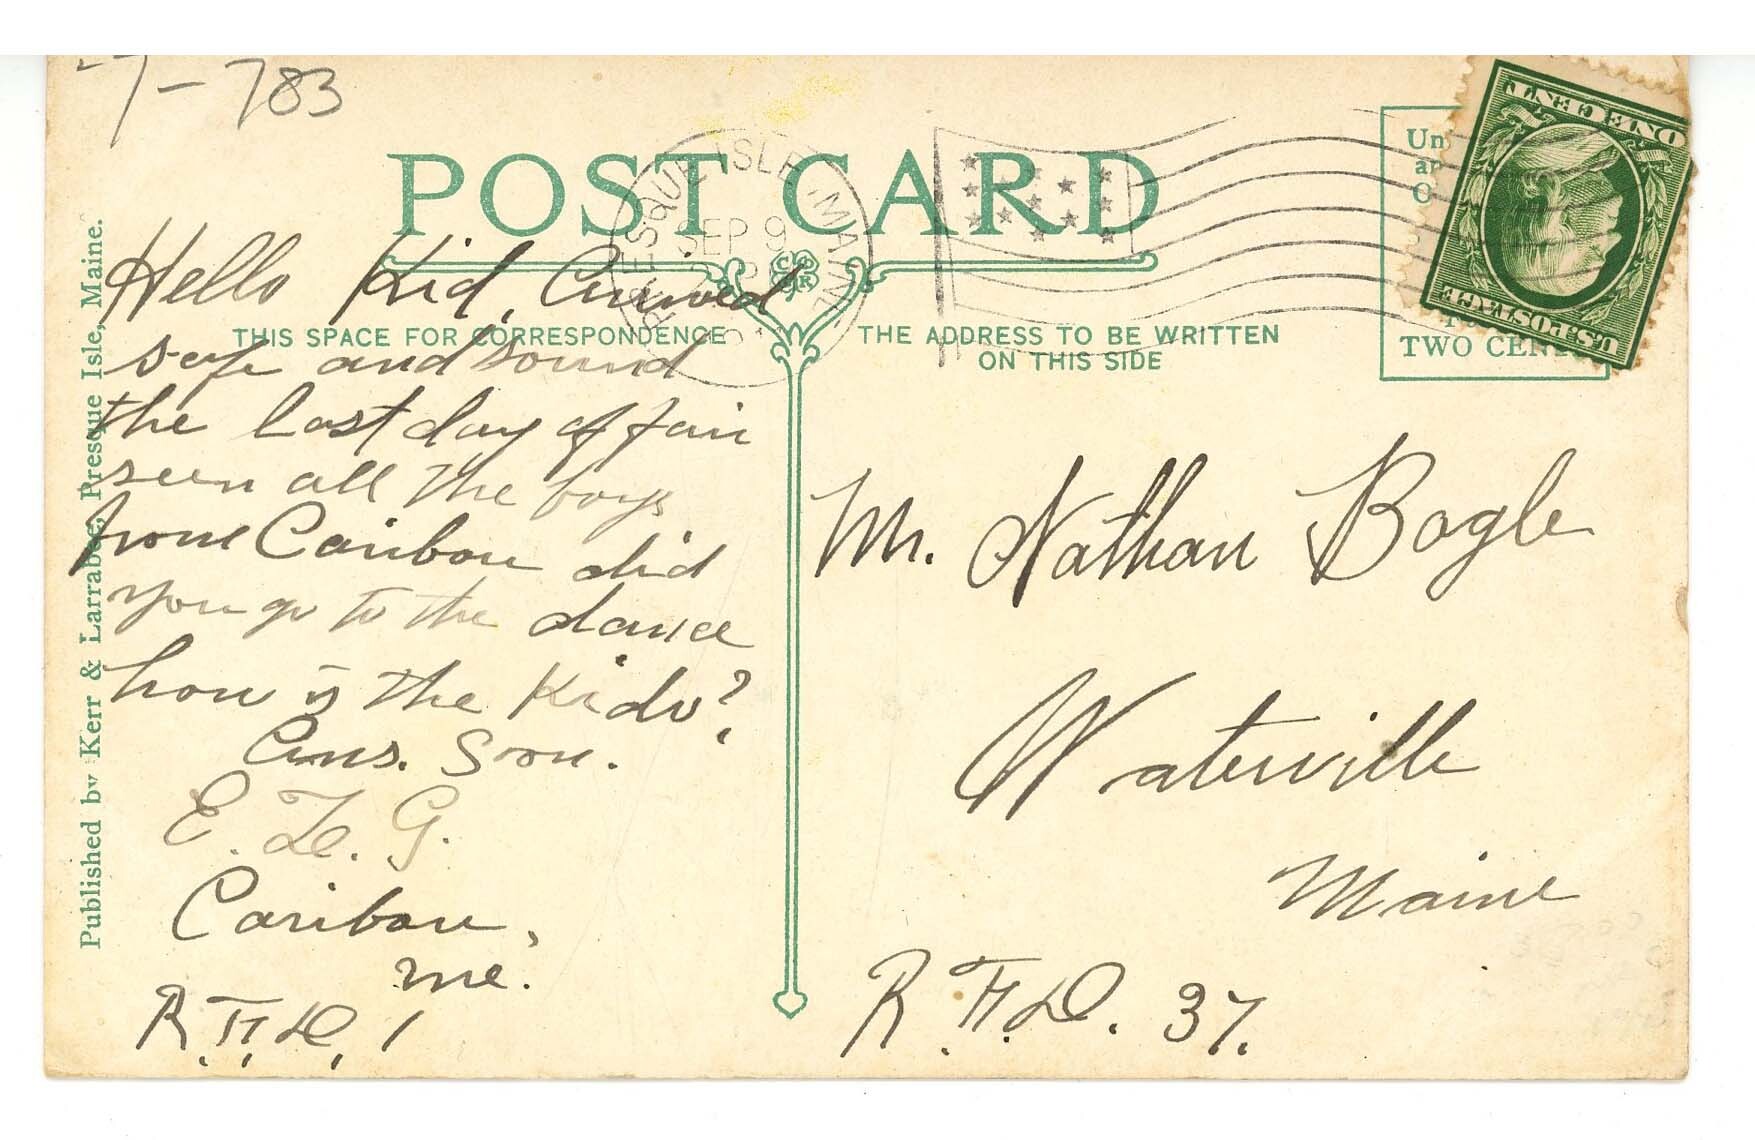 7-783
POST CARD
PRESQUE ISLE, MAINE
SEP 9
THIS SPACE FOR CORRESPONDENCE
THE ADDRESS TO BE WRITTEN
ON THIS SIDE
Un
an
C
TWO CENT
ONE CENT
U.S. POSTAGE
Published by Kerr & Larrabee, Presque Isle, Maine.
Hello Kid, Arrived
safe and sound
the last day of fair
seen all the boys
from Caribou did
you go to the dance
how is the Kids?
Ans. Soon.
E. L. G.
Caribou,
Me.
R.F.D. 1
Mr. Nathan Bogle
Waterville
Maine
R.F.D. 37.